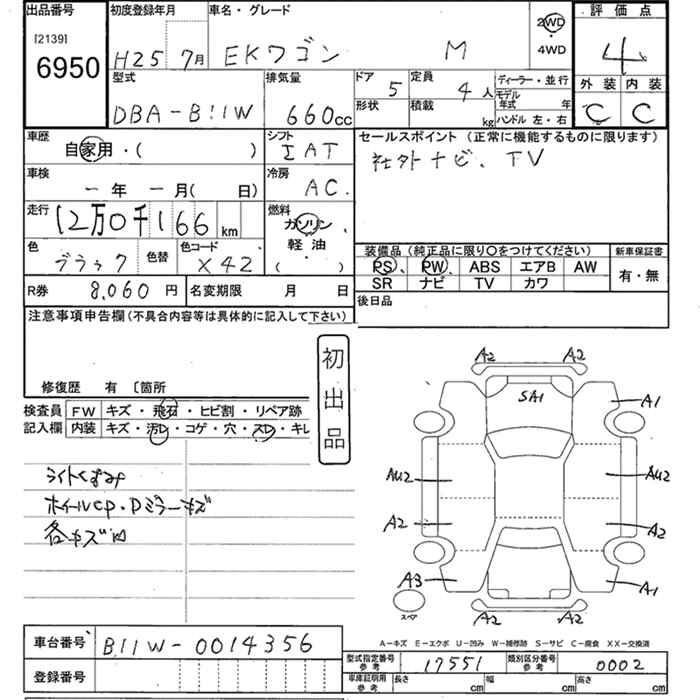 出品番号 初度登録年月 車名・グレード 2WD 評価点
[2139]
6950 H25 7月 EKワゴン M 4WD 4
型式 排気量 ドア 5 定員 4人 ディーラー・並行 外装 内装
モデル年式 年
DBA-B11W 660cc 形状 積載 kg ハンドル 左・右 C C
車歴 自家用・( ) シフト IAT セールスポイント (正常に機能するものに限ります)
社外ナビ、TV
車検 一年 一月( 日) 冷房 AC
走行 12万0千166km 燃料 ガソリン・軽油・( )
色 ブラック 色替 色コード X42
装備品 (純正品に限り○をつけてください) 新車保証書
PS PW ABS エアB AW 有・無
SR ナビ TV カワ
R券 8,060円 名変期限 月 日 後日品
注意事項申告欄(不具合内容等は具体的に記入して下さい)
初出品
修復歴 有 〔箇所
検査員 FW キズ・飛石・ヒビ割・リペア跡
記入欄 内装 キズ・汚レ・コゲ・穴・スレ・キレ
ライトくすみ
ホイールCP・Dミラーキズ
各キズ凹
A2 A2
SA1
A1
AU2 AU2
A2 A2
A3 A1
スペア
A2 A2
A-キズ E-エクボ U-凹み W-補修跡 S-サビ C-腐食 XX-交換済
車台番号 B11W-0014356
型式指定番号 参考 17551 類別区分番号 参考 0002
登録番号
車庫証明用 参考 長さ cm 幅 cm 高さ cm